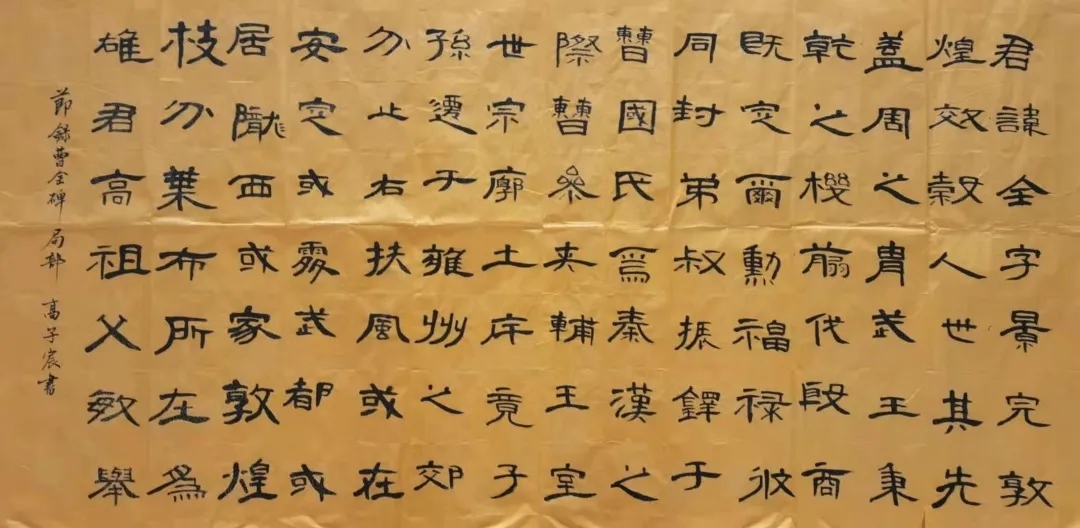 君諱全字景完敦
煌效穀人世其先
蓋周之胄武王秉
乾之機翦伐殷商
既定爾勳福禄攸
同封弟叔振鐸于
曹國氏焉秦漢之
際曹參夾輔王室
世宗廓土斥竟子
孫遷于雍州之郊
分止右扶風或在
安定或處武都或
居隴西或家敦煌
枝分葉布所在為
雄君高祖父敏舉
節錄曹全碑 局部 高子宸書